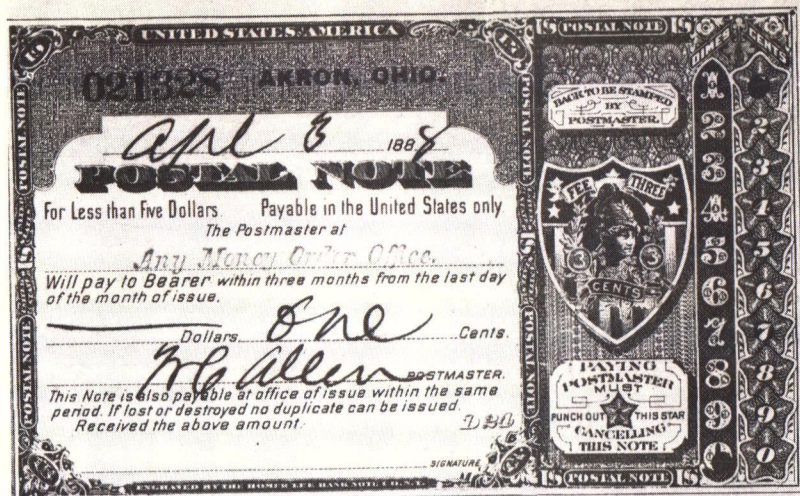 UNITED STATES AMERICA
021328 AKRON, OHIO.
Apl 3 1888
POSTAL NOTE
For Less than Five Dollars. Payable in the United States only
The Postmaster at
Any Money Order Office.
Will pay to Bearer within three months from the last day
of the month of issue.
Dollars. One Cents.
Allen POSTMASTER.
This Note is also payable at office of issue within the same
period. If lost or destroyed no duplicate can be issued.
Received the above amount:
SIGNATURE
ENGRAVED BY THE HOMER LEE BANK NOTE CO. N.Y.
POSTAL NOTE
POSTAL NOTE
POSTAL NOTE
POSTAL NOTE
$ POSTAL NOTE $
BACK TO BE STAMPED
BY
POSTMASTER.
FEE THREE
3 3
CENTS
PAYING
POSTMASTER
MUST
PUNCH OUT THIS STAR
CANCELLING
THIS NOTE
$ POSTAL NOTE $
DIMES CENTS
1
2 2
3 3
4 4
5 5
6 6
7 7
8 8
9 9
0 0